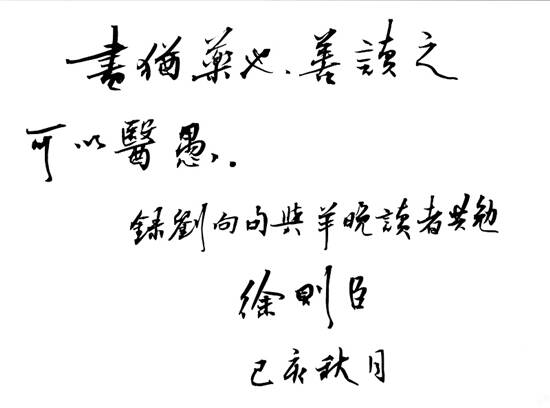 書猶藥也、善讀之
可以醫愚。
録劉向句與羊晚讀者共勉
徐則臣
己亥秋月